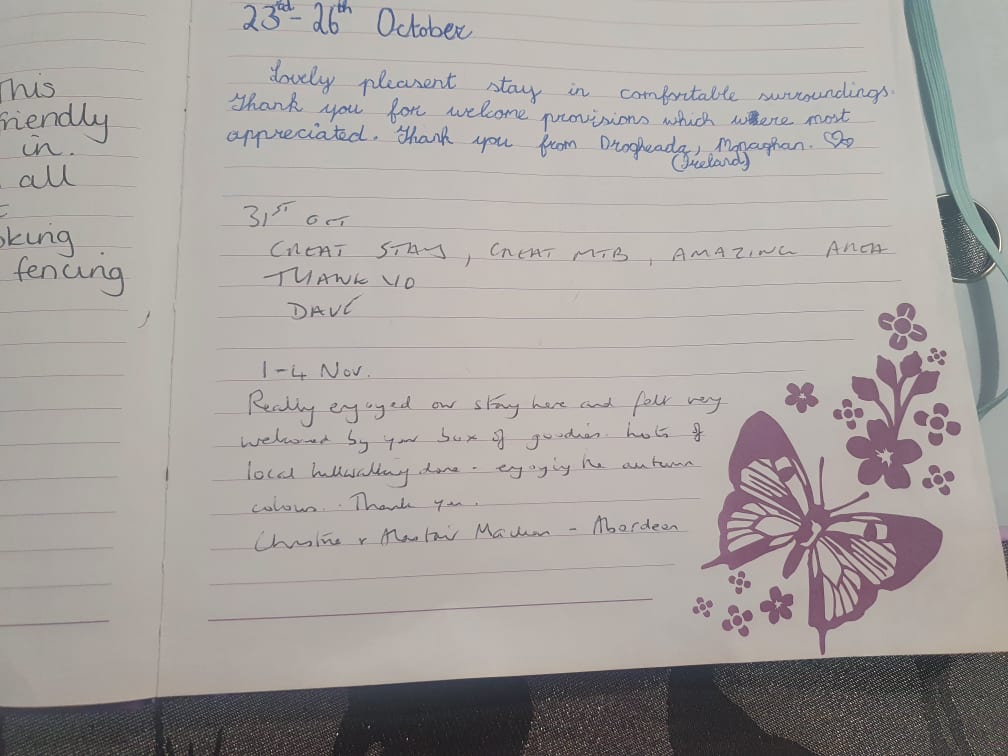 This
friendly
in.
all
oking
fencing
23rd - 26th October
Lovely pleasent stay in comfortable surroundings.
Thank you for welcome provisions which were most
appreciated. Thank you from Drogheada, Monaghan.
(Ireland)
31ST OCT
GREAT STAY, GREAT MTB, AMAZING AREA
THANK YO
DAVE
1-4 Nov.
Really enjoyed our stay here and felt very
welcomed by your box of goodies. Lots of
local hillwalking done - enjoying the autumn
colours. Thank you.
Christine & Alastair - Aberdeen